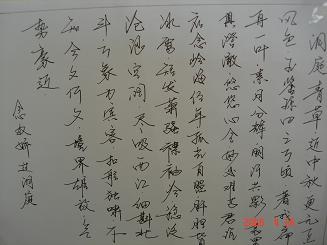 洞庭青草近中秋更无一点
风色玉鉴琼田三万顷著我扁
舟一叶素月分辉明河共影表里
俱澄澈悠悠心会妙处难与君说
应念岭海经年孤光自照肝胆皆
冰雪短发萧骚襟袖冷稳泛
沧浪空阔尽吸西江细斟北
斗万象为宾客扣舷独啸不
知今夕何夕境界
势豪迈
念奴娇过洞庭